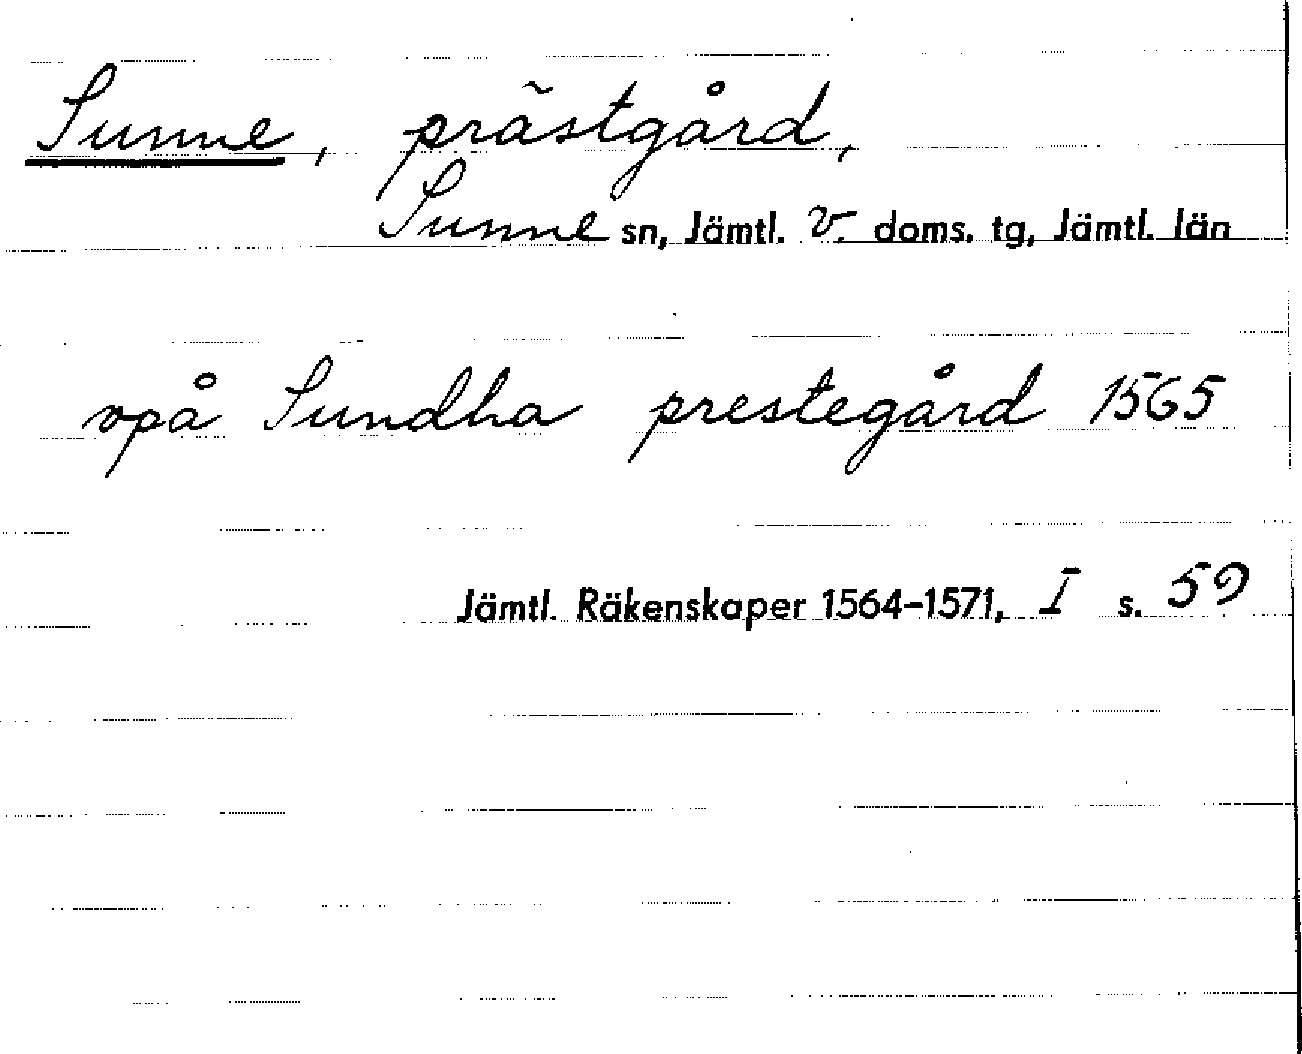 Sunne, prästgård,
Sunne sn, Jämtl. v. doms. tg, Jämtl. län
vpå Sundha prestegård 1565
Jämtl. Räkenskaper 1564-1571, I s. 59